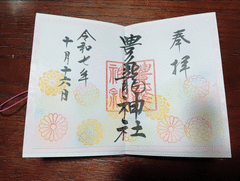 奉拝
豊龍神社
令和七年
十月十六日